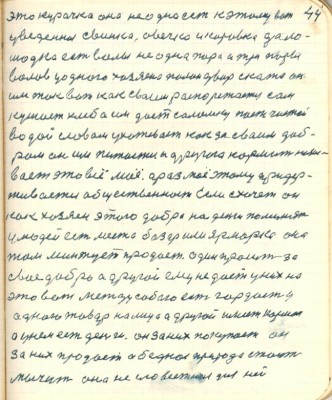 44
это курачка она не одна ест к этому вот
уведенна свинка, овечка и каровка дало
шодка ест волы не одна пара а три пары
валов у одного хазяена полон двор ската он
им так вот как своим распоряжаеться сам
кушает хлеб а им даёт саломку паит чистой
водой словам ухаживает как за сваим доб-
ром он им питаеться а другога кормит назы-
вает это всё маё. а раз маё этому придер-
живаеться общественност Если схочет он
как хозяен этого добра на день полишнят
у людей ест места базар или ярмарка она
там продает один прамт за
свае добро а другой ему не даёт у них на
это вот метод ест гордасть у
аднаго товар на лицо а другой имеет
а у нем ест деньги. он за них покупает он
за них продаёт а бедная природа стоит
молчит она не словестная для ней